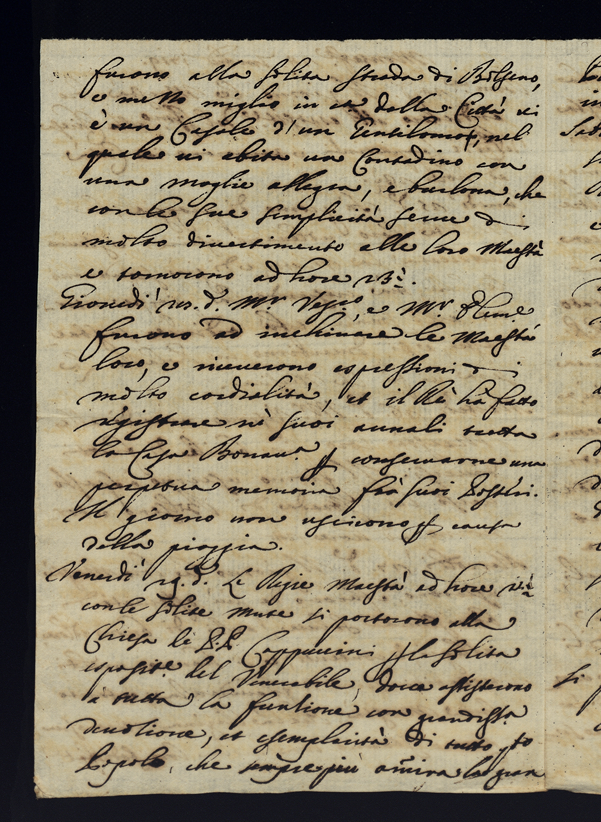 furono alla solita strada di Bolseno,
e mezzo miglio in ca della Città vi
è un Casale d'un Gentilomo, nel
quale vi abita un Contadino con
una moglie allegra, e burlona, che
con le sue semplicità serve di
molto divertimento alle loro Maestà
e tornorono ad hore 23.
Giovedì d. Mr. e Mr.
furono ad inchinare le Maestà
loro, e riceverono espressioni di
molto cordialità, et il Rè hà fatto
registrare nè suoi annali tutta
la Casa Bonavª ꝑ conservarne una
perpetua memoria frà suoi Posteri.
Il giorno non uscirono ꝑ causa
della pioggia.
Venerdì d. Le Regie Maestà ad hore
con le solite mute si portorono alla
Chiesa de PP. Cappuccini ꝑ la solita
esposite. del Venerabile, dove assisterono
a tutta la funtione con grandissª
divotione, et esemplarità di tutto
Popolo, che sempre più amira la gran